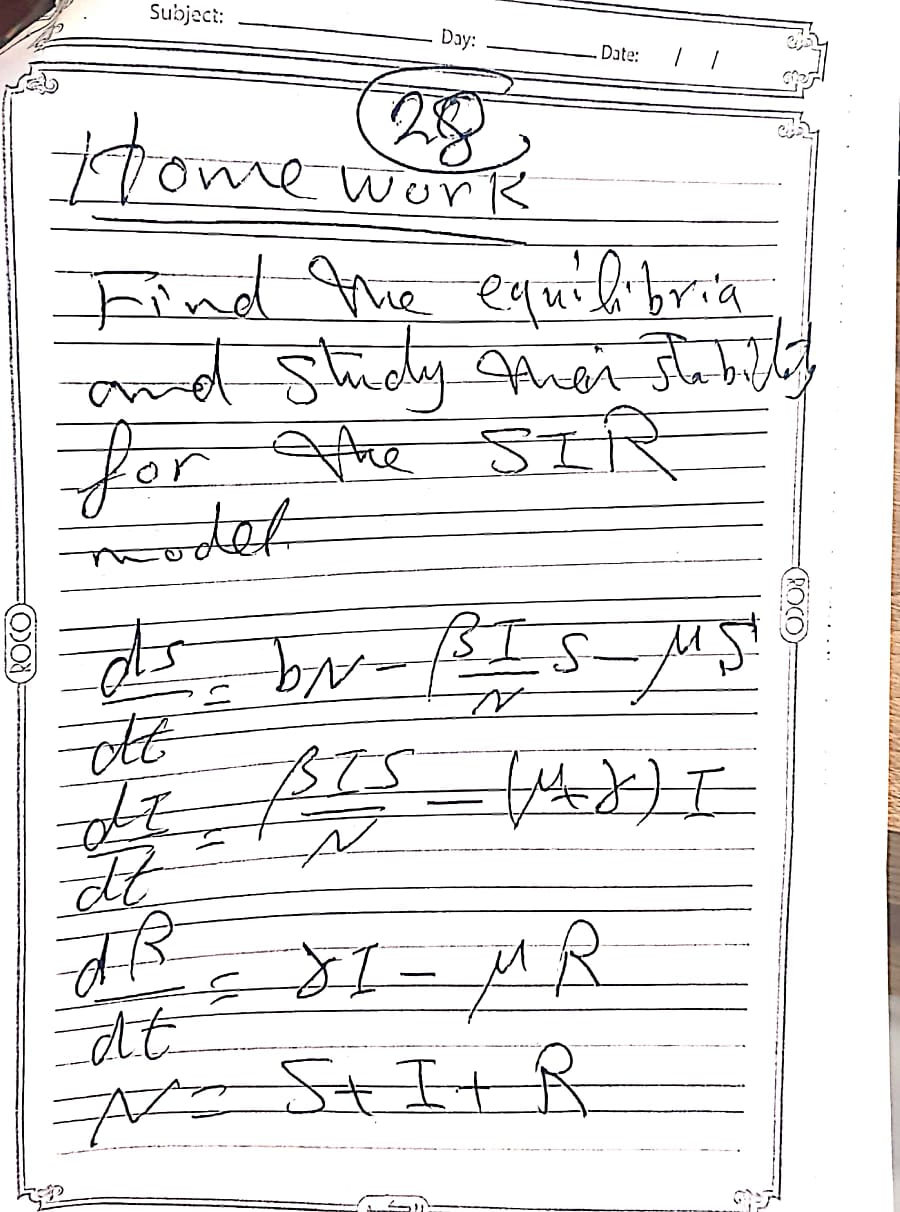 Subject:
Day:
Date: / /
28
Home work
Find the equilibria
and study their stability
for the SIR
model.
ds/dt = bN - βI/N S - μS
dI/dt = βIS/N - (μ+γ)I
dR/dt = γI - μR
N = S+I+R
ROCO
ROCO